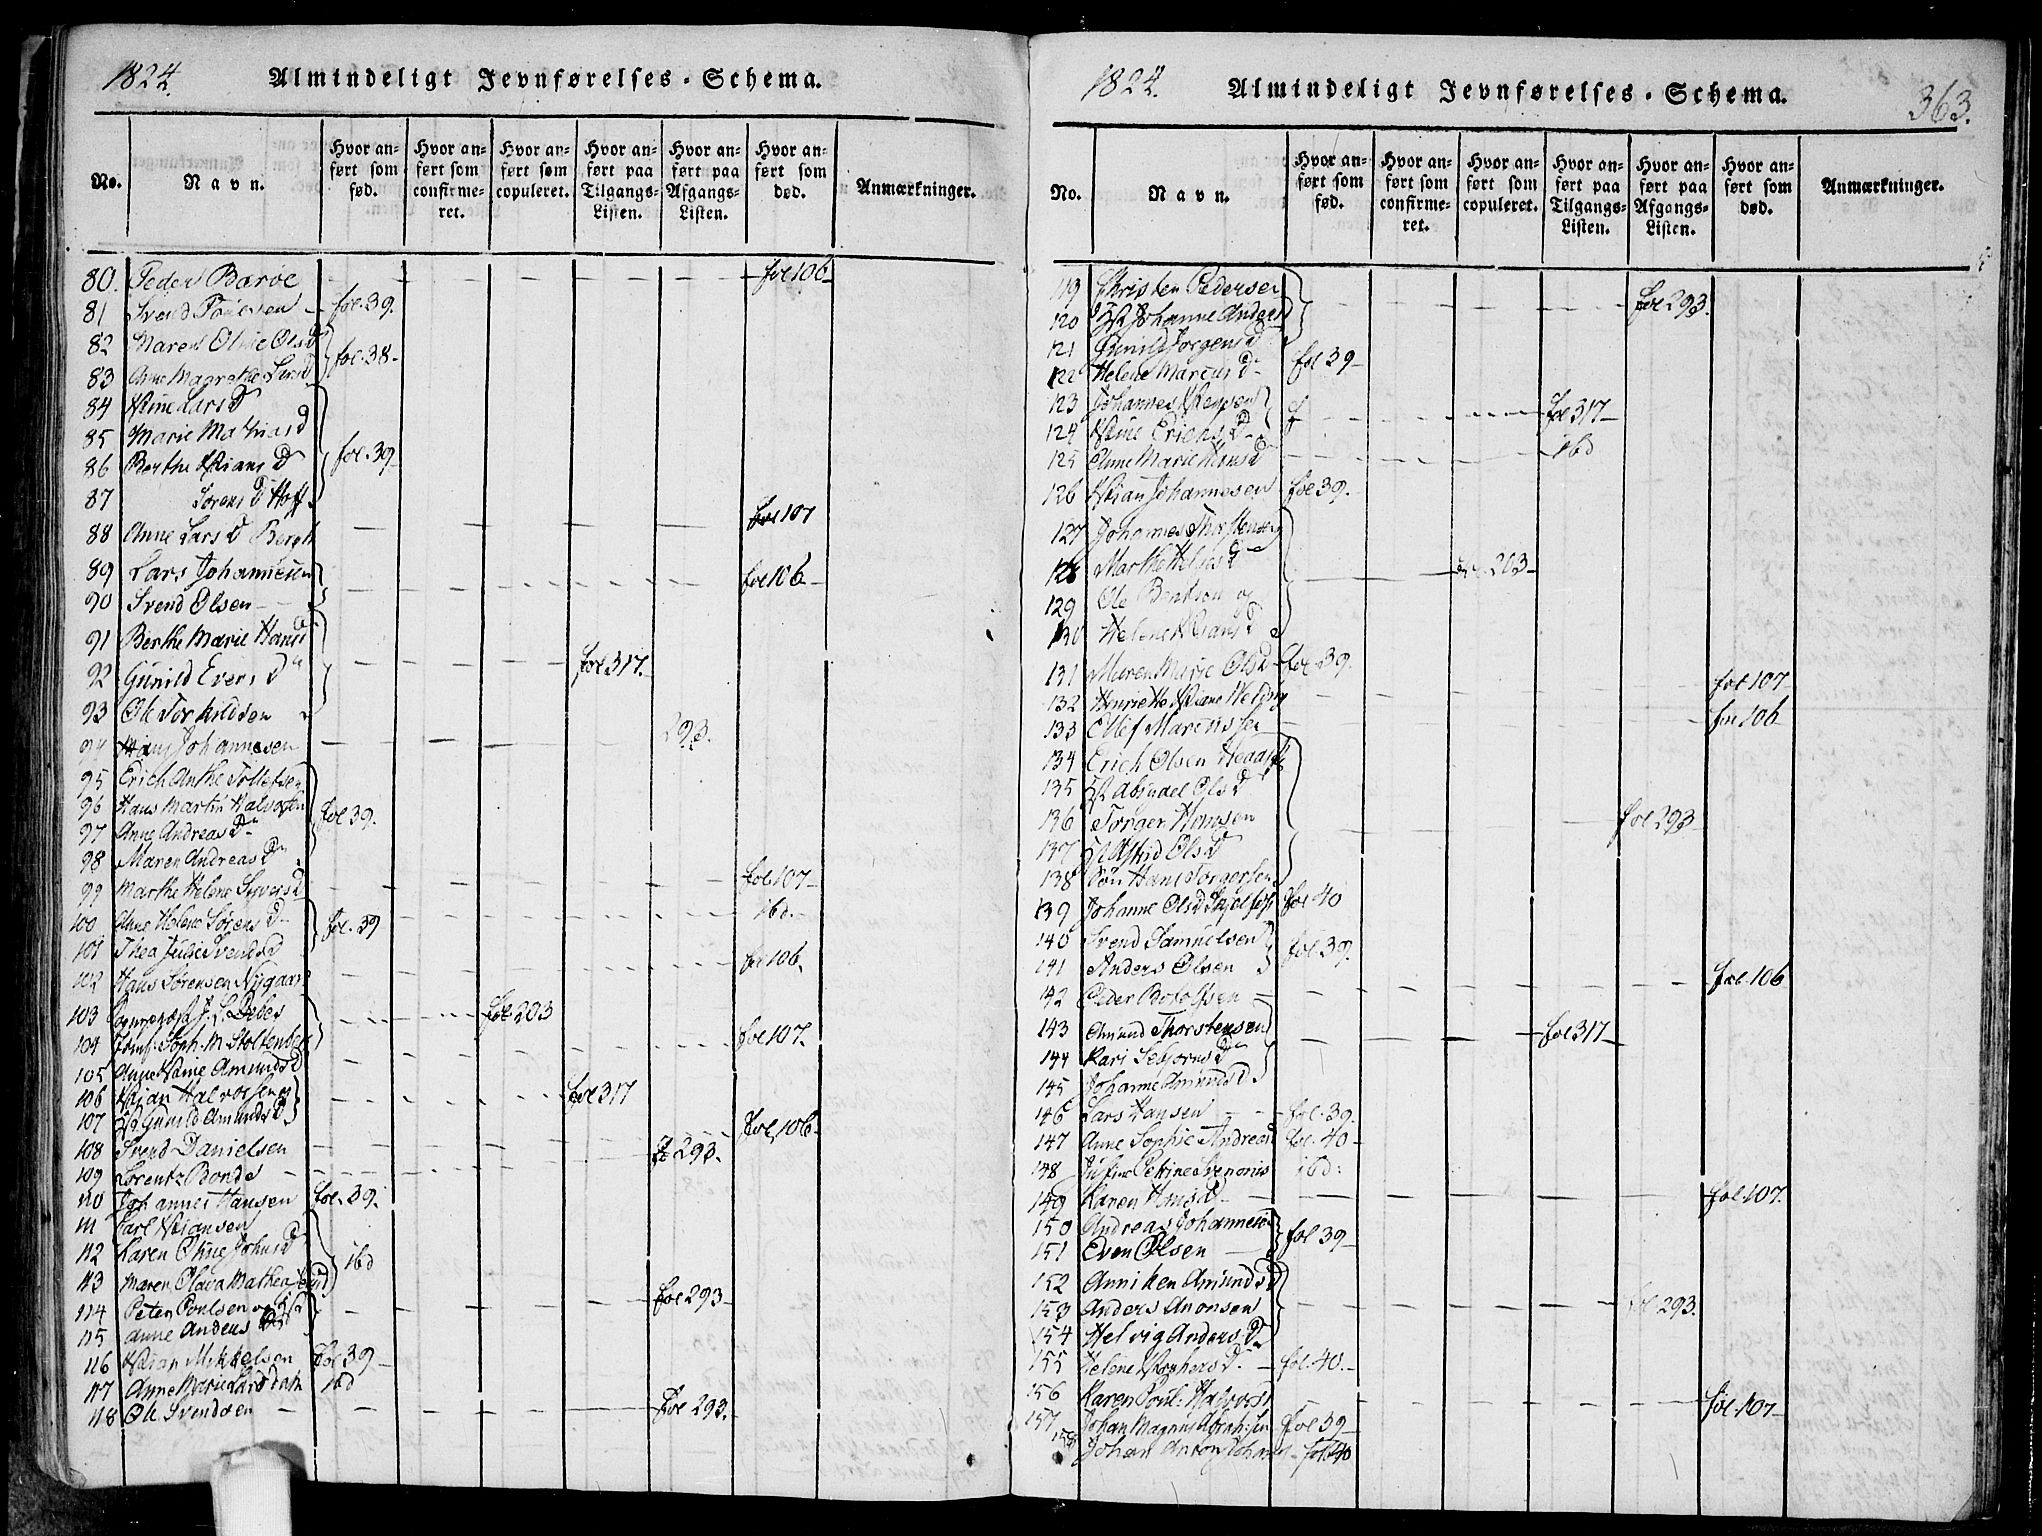 1824.
Almindeligt Jevnførelses-Schema.
No.
Navn.
Hvor anført som fød.
Hvor anført som confirmeret.
Hvor anført som copuleret.
Hvor anført paa Tilgangs-Listen.
Hvor anført paa Afgangs-Listen.
Hvor anført som død.
Anmærkninger.
80. Peder Barøe fol 106
81 Svend Poulsen fol. 39.
82 Maren Oline Olsd
83 Anne Magrethe Larsd fol. 38
84 Larsd
85 Marie Mathiasd
86 Berthe Kians D fol. 39
87 Sørens D Hoff
88 Anne Lars D Bergh fol 107
89 Lars Johannesen fol 106
90 Svend Olsen
91 Berthe Marie Hansd
92 Gunild Evers D fol 317.
93 Ole Torkildsen
94 Johannesen 293.
95 Erich Anthe Tollefsen
96 Hans Martin Halvorsen fol 39.
97 Anne Andreas D
98 Maren Andreas D
99 Marthe Helene Syversd fol 107
100 Anne Helene Sørens D ibd.
101 Thea Julie Svendsd fol. 39
102 Hans Sørensen Nygaar fol 106
103 J. L. Debes fol 203
104 Jomf. Soph. M Stoltenberg
105 Anne Amunds D fol 107.
106 Kian Halvorsen og
107 Gunild Amunds D fol 317
108 Svend Danielsen fol. 106
109 Lorentz Bonde fo 293.
110 Johannes Hansen fol. 39.
111 Carl Kiansen
112 Karen Oline Johnsd ibd
113 Maren Olava Mathea
114 Peter Poulsen og fol 293
115 Anne Anders
116 Kian Mikkelsen fol 39
117 Anne Marie Larsdatr ibd
118 Ole Svendsen fol 293.
1824.
Almindeligt Jevnførelses-Schema.
363.
No.
Navn.
Hvor anført som fød.
Hvor anført som confirmeret.
Hvor anført som copuleret.
Hvor anført paa Tilgangs-Listen.
Hvor anført paa Afgangs-Listen.
Hvor anført som død.
Anmærkninger.
119 Christen Pedersen fol 293.
120 Johanne Andersd
121 Gunild Jørgensd
122 Helene Marcus D fol 39
123 Johannes fol 317
124 Erichs D
125 Anne Marie Hansd ibd
126 Kian Johannesen fol 39.
127 Johannes
128 Marthe fol. 203
129 Ole Bentsen og
130 Helene Kians D
131 Maren Marie Olsd fol 39.
132 Henriette fol 107
133 Ellef Marcussen fol 106
134 Erich Olsen
135 Abigael Ols D
136 Torger Hansen fol 293
137 Astrid Ols D
138 Søn Hans Torgersen
139 Johanne Olsd fol 40
140 Svend Samuelsen fol 39.
141 Anders Olsen
142 Peder fol. 106
143 Amund Thorstensen fol 317
144 Kari Sebjørns D
145 Johanne Amundsd
146 Lars Hansen fol. 39.
147 Anne Sophie Andreasd fol. 40
148 Petrine ibd:
149 Karen Hans D fol 107.
150 Andreas Johannesen
151 Even Olsen fol 39
152 Anniken Amunds D
153 Anders Anonsen fol 293.
154 Helvig Anders D
155 Helene D. fol. 40.
156 Karen Poul. Halvorsd fol. 107
157 Johan Magnus Abrah:sen fol 39
158 Johan Anton Johannes fol 40